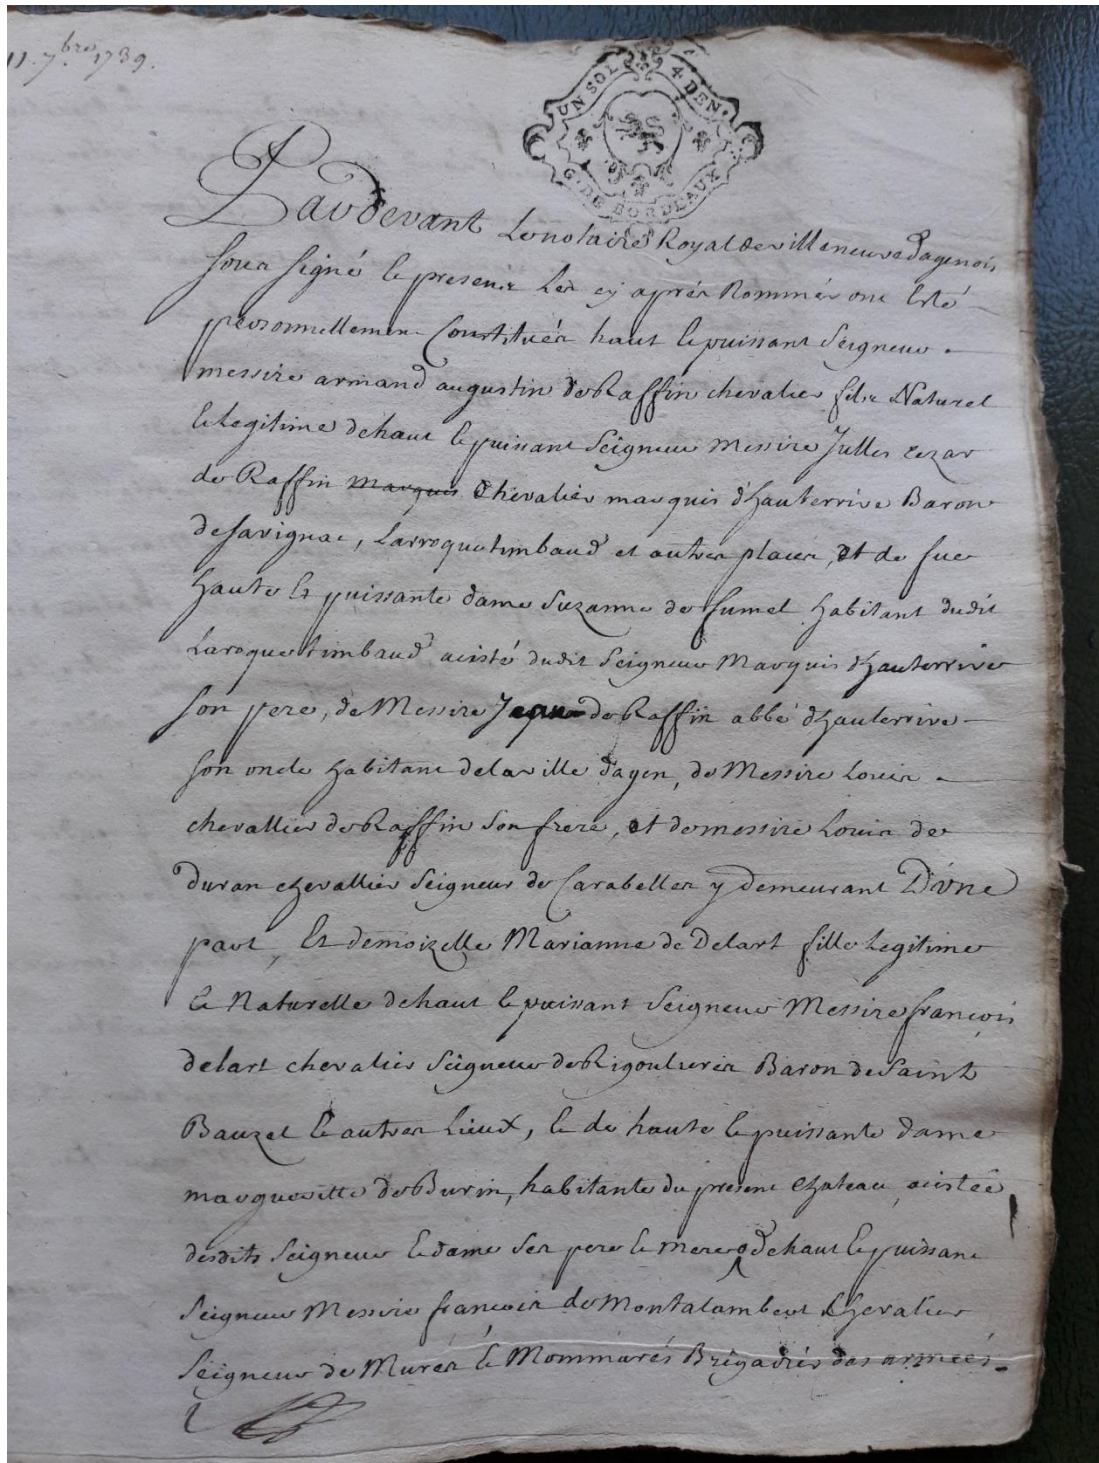 11. 7bre 1739.
UN SOL 4 DEN.
G. DE BORDEAUX
Pardevant Le notaire Royal de villeneuve d'agenois
sous signé le present Les cy aprés Nommés ont Esté
personnellement Constitués haut & puissant Seigneur
messire armand augustin de Raffin chevalier fils Naturel
& Legitime de haut & puissant Seigneur Messire Julles cezar
de Raffin marquis Chevalier marquis d'hauterrive Baron
de savignac, Larroquetimbaud et autres places, et de fue
haute & puissante dame Suzanne de fumel habitant dudit
Laroquetimbaud acisté dudit Seigneur Marquis d'hauterrive
son pere, de Messire Jean de Raffin abbé d'hauterrive
son oncle habitant de la ville d'agen, de Messire Louis
chevallier de Raffin son frere, et de messire Louis de
Duran chevallier Seigneur de Carabelles y demeurant D'vne
part, Et demoizelle Marianne de Delart fille Legitime
& Naturelle de haut & puissant Seigneur Messire françois
delart chevalier Seigneur de Rigoulieres Baron de Saint
Bauzel & autres Lieux, & de haute & puissante dame
margueritte de Burin, habitante du present chateau, acistée
desdits Seigneur & dame ses pere & mere de haut & puissant
Seigneur Messire françois de Montalambert Chevalier
Seigneur de Murés & Mommarés Brigadier des armées